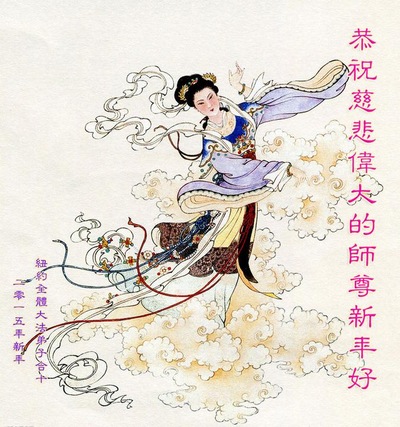 恭祝慈悲偉大的師尊新年好
紐約全體大法弟子合十
二零一五年新年